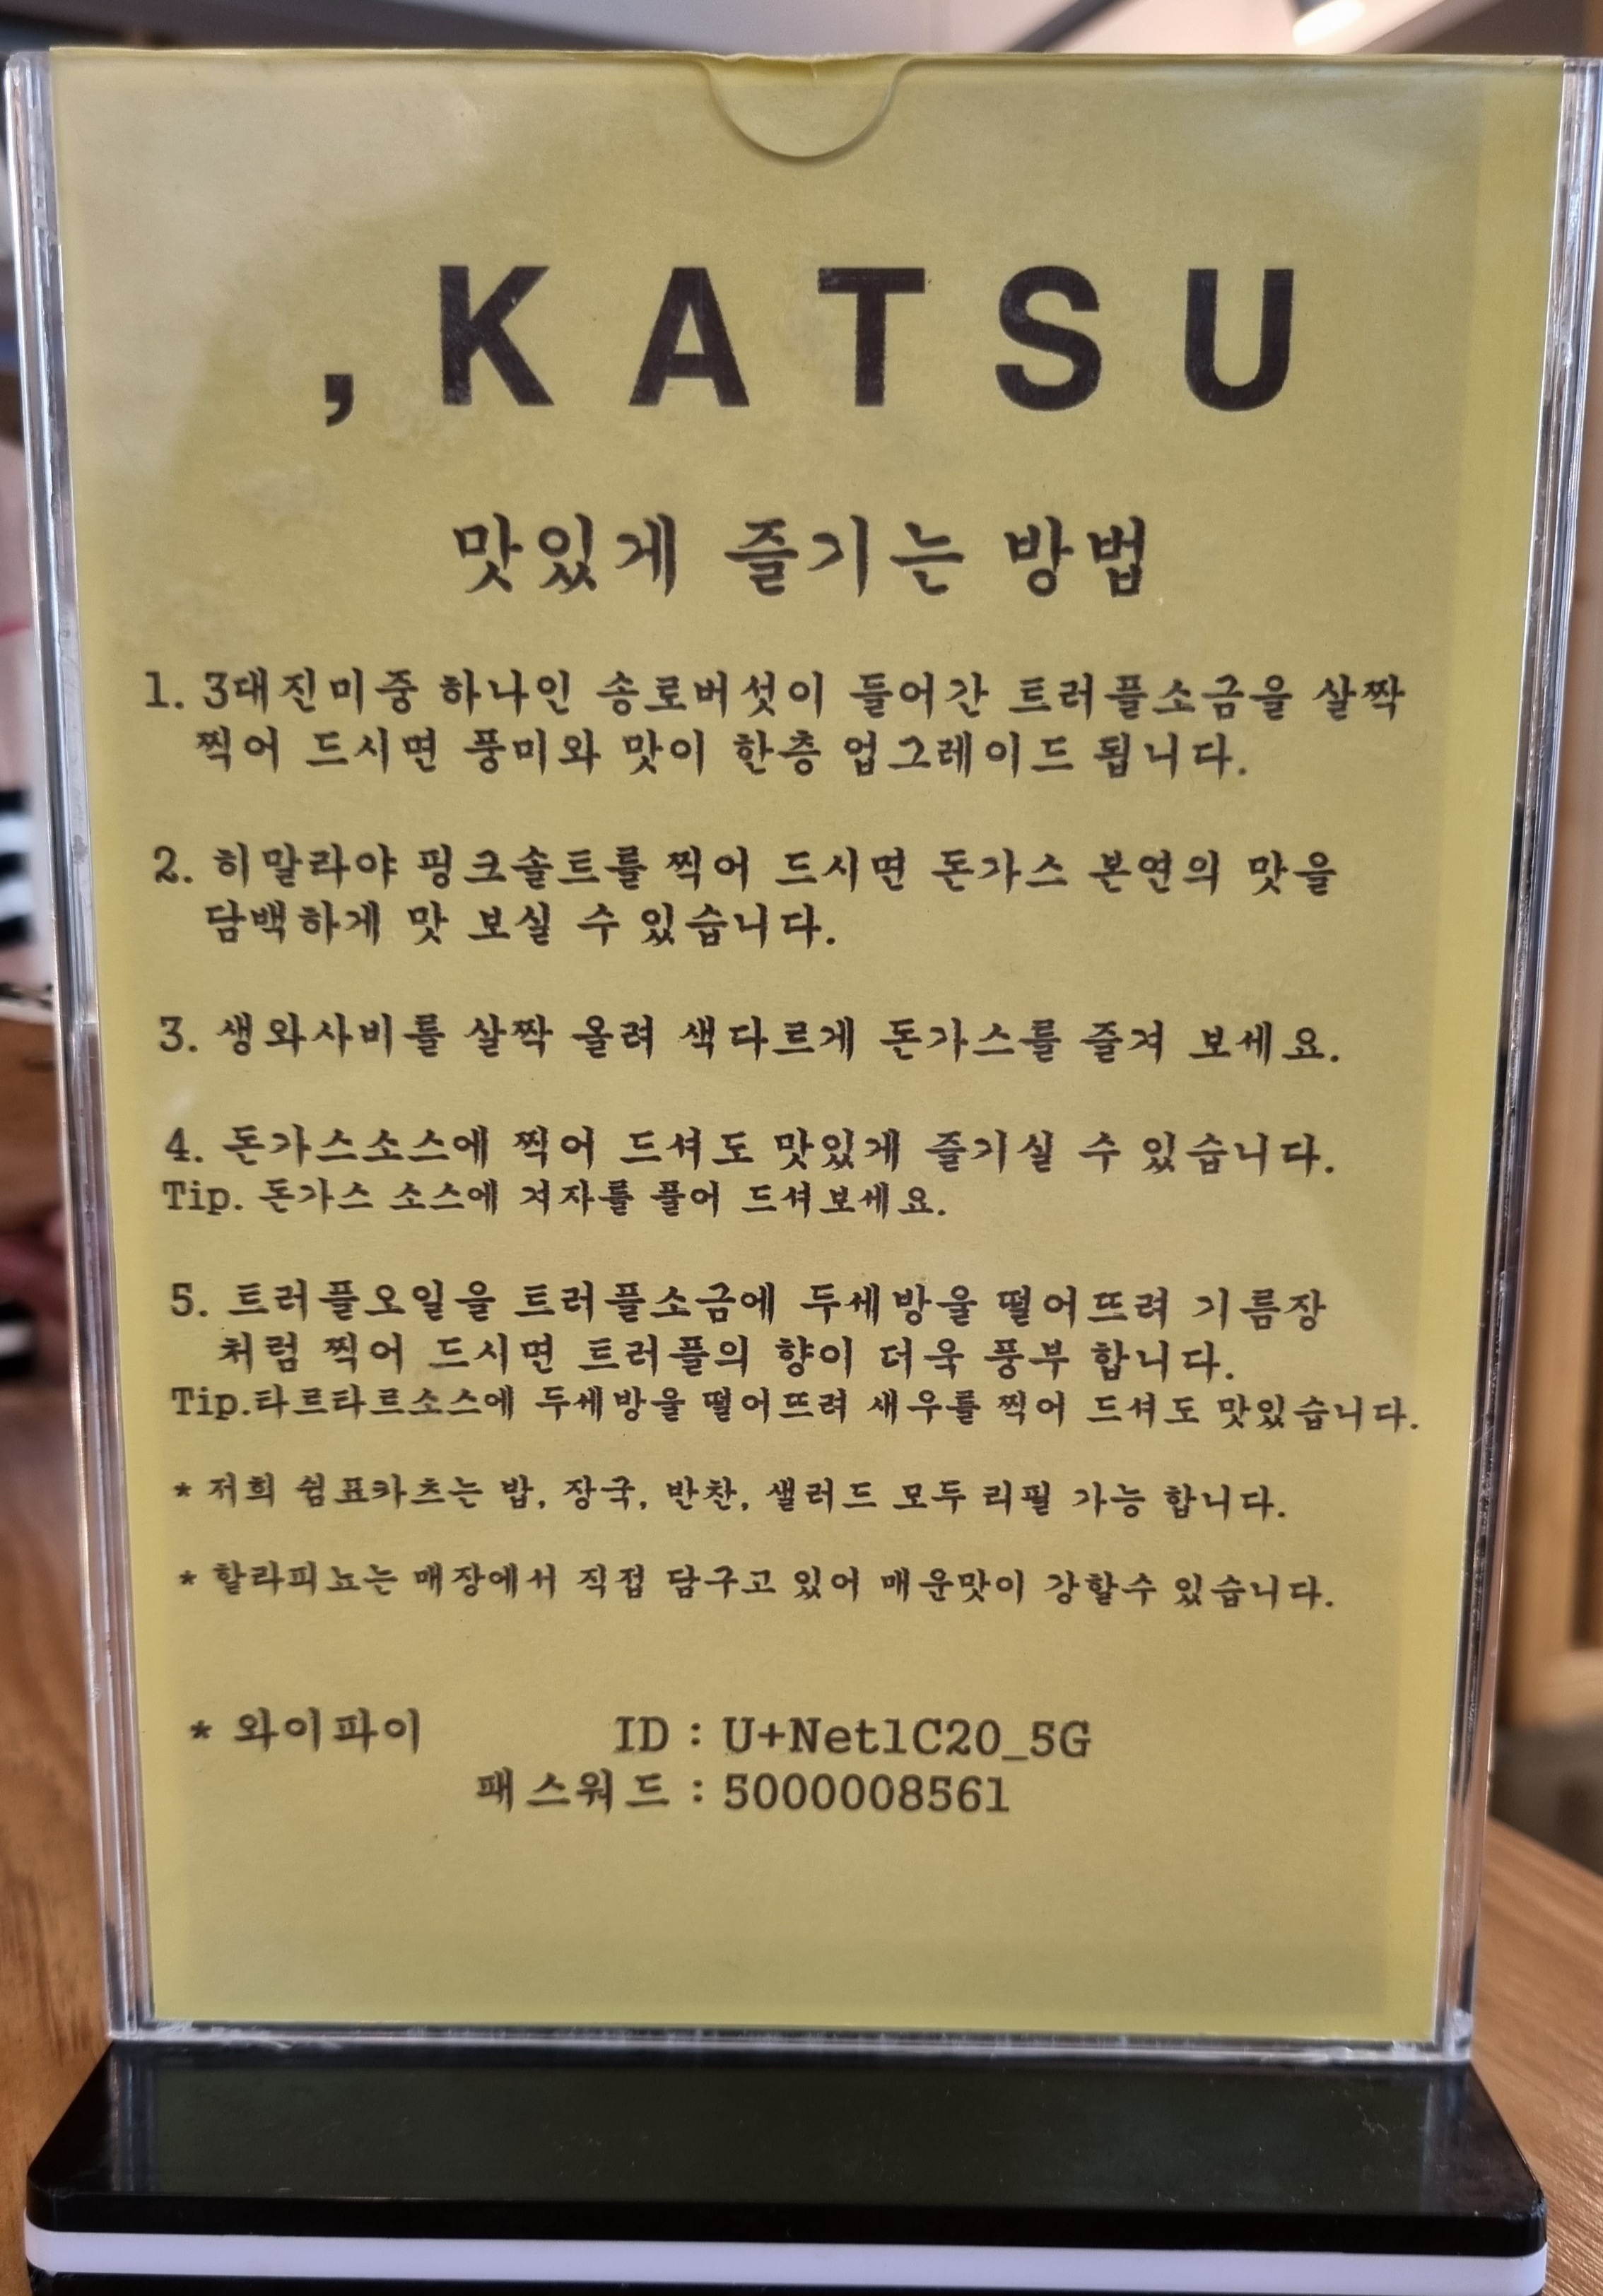 , KATSU
맛있게 즐기는 방법
1. 3대진미중 하나인 송로버섯이 들어간 트러플소금을 살짝
찍어 드시면 풍미와 맛이 한층 업그레이드 됩니다.
2. 히말라야 핑크솔트를 찍어 드시면 돈가스 본연의 맛을
담백하게 맛 보실 수 있습니다.
3. 생와사비를 살짝 올려 색다르게 돈가스를 즐겨 보세요.
4. 돈가스소스에 찍어 드셔도 맛있게 즐기실 수 있습니다.
Tip. 돈가스 소스에 겨자를 풀어 드셔보세요.
5. 트러플오일을 트러플소금에 두세방울 떨어뜨려 기름장
처럼 찍어 드시면 트러플의 향이 더욱 풍부 합니다.
Tip.타르타르소스에 두세방울 떨어뜨려 새우를 찍어 드셔도 맛있습니다.
* 저희 쉼표카츠는 밥, 장국, 반찬, 샐러드 모두 리필 가능 합니다.
* 할라피뇨는 매장에서 직접 담구고 있어 매운맛이 강할수 있습니다.
* 와이파이 ID : U+Net1C20_5G
패스워드 : 5000008561